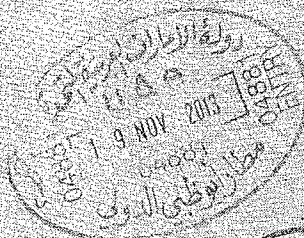 دولة الإمارات العربية المتحدة
U A E
19 NOV 2013
04881
ENTRY
مطار أبوظبي الدولي